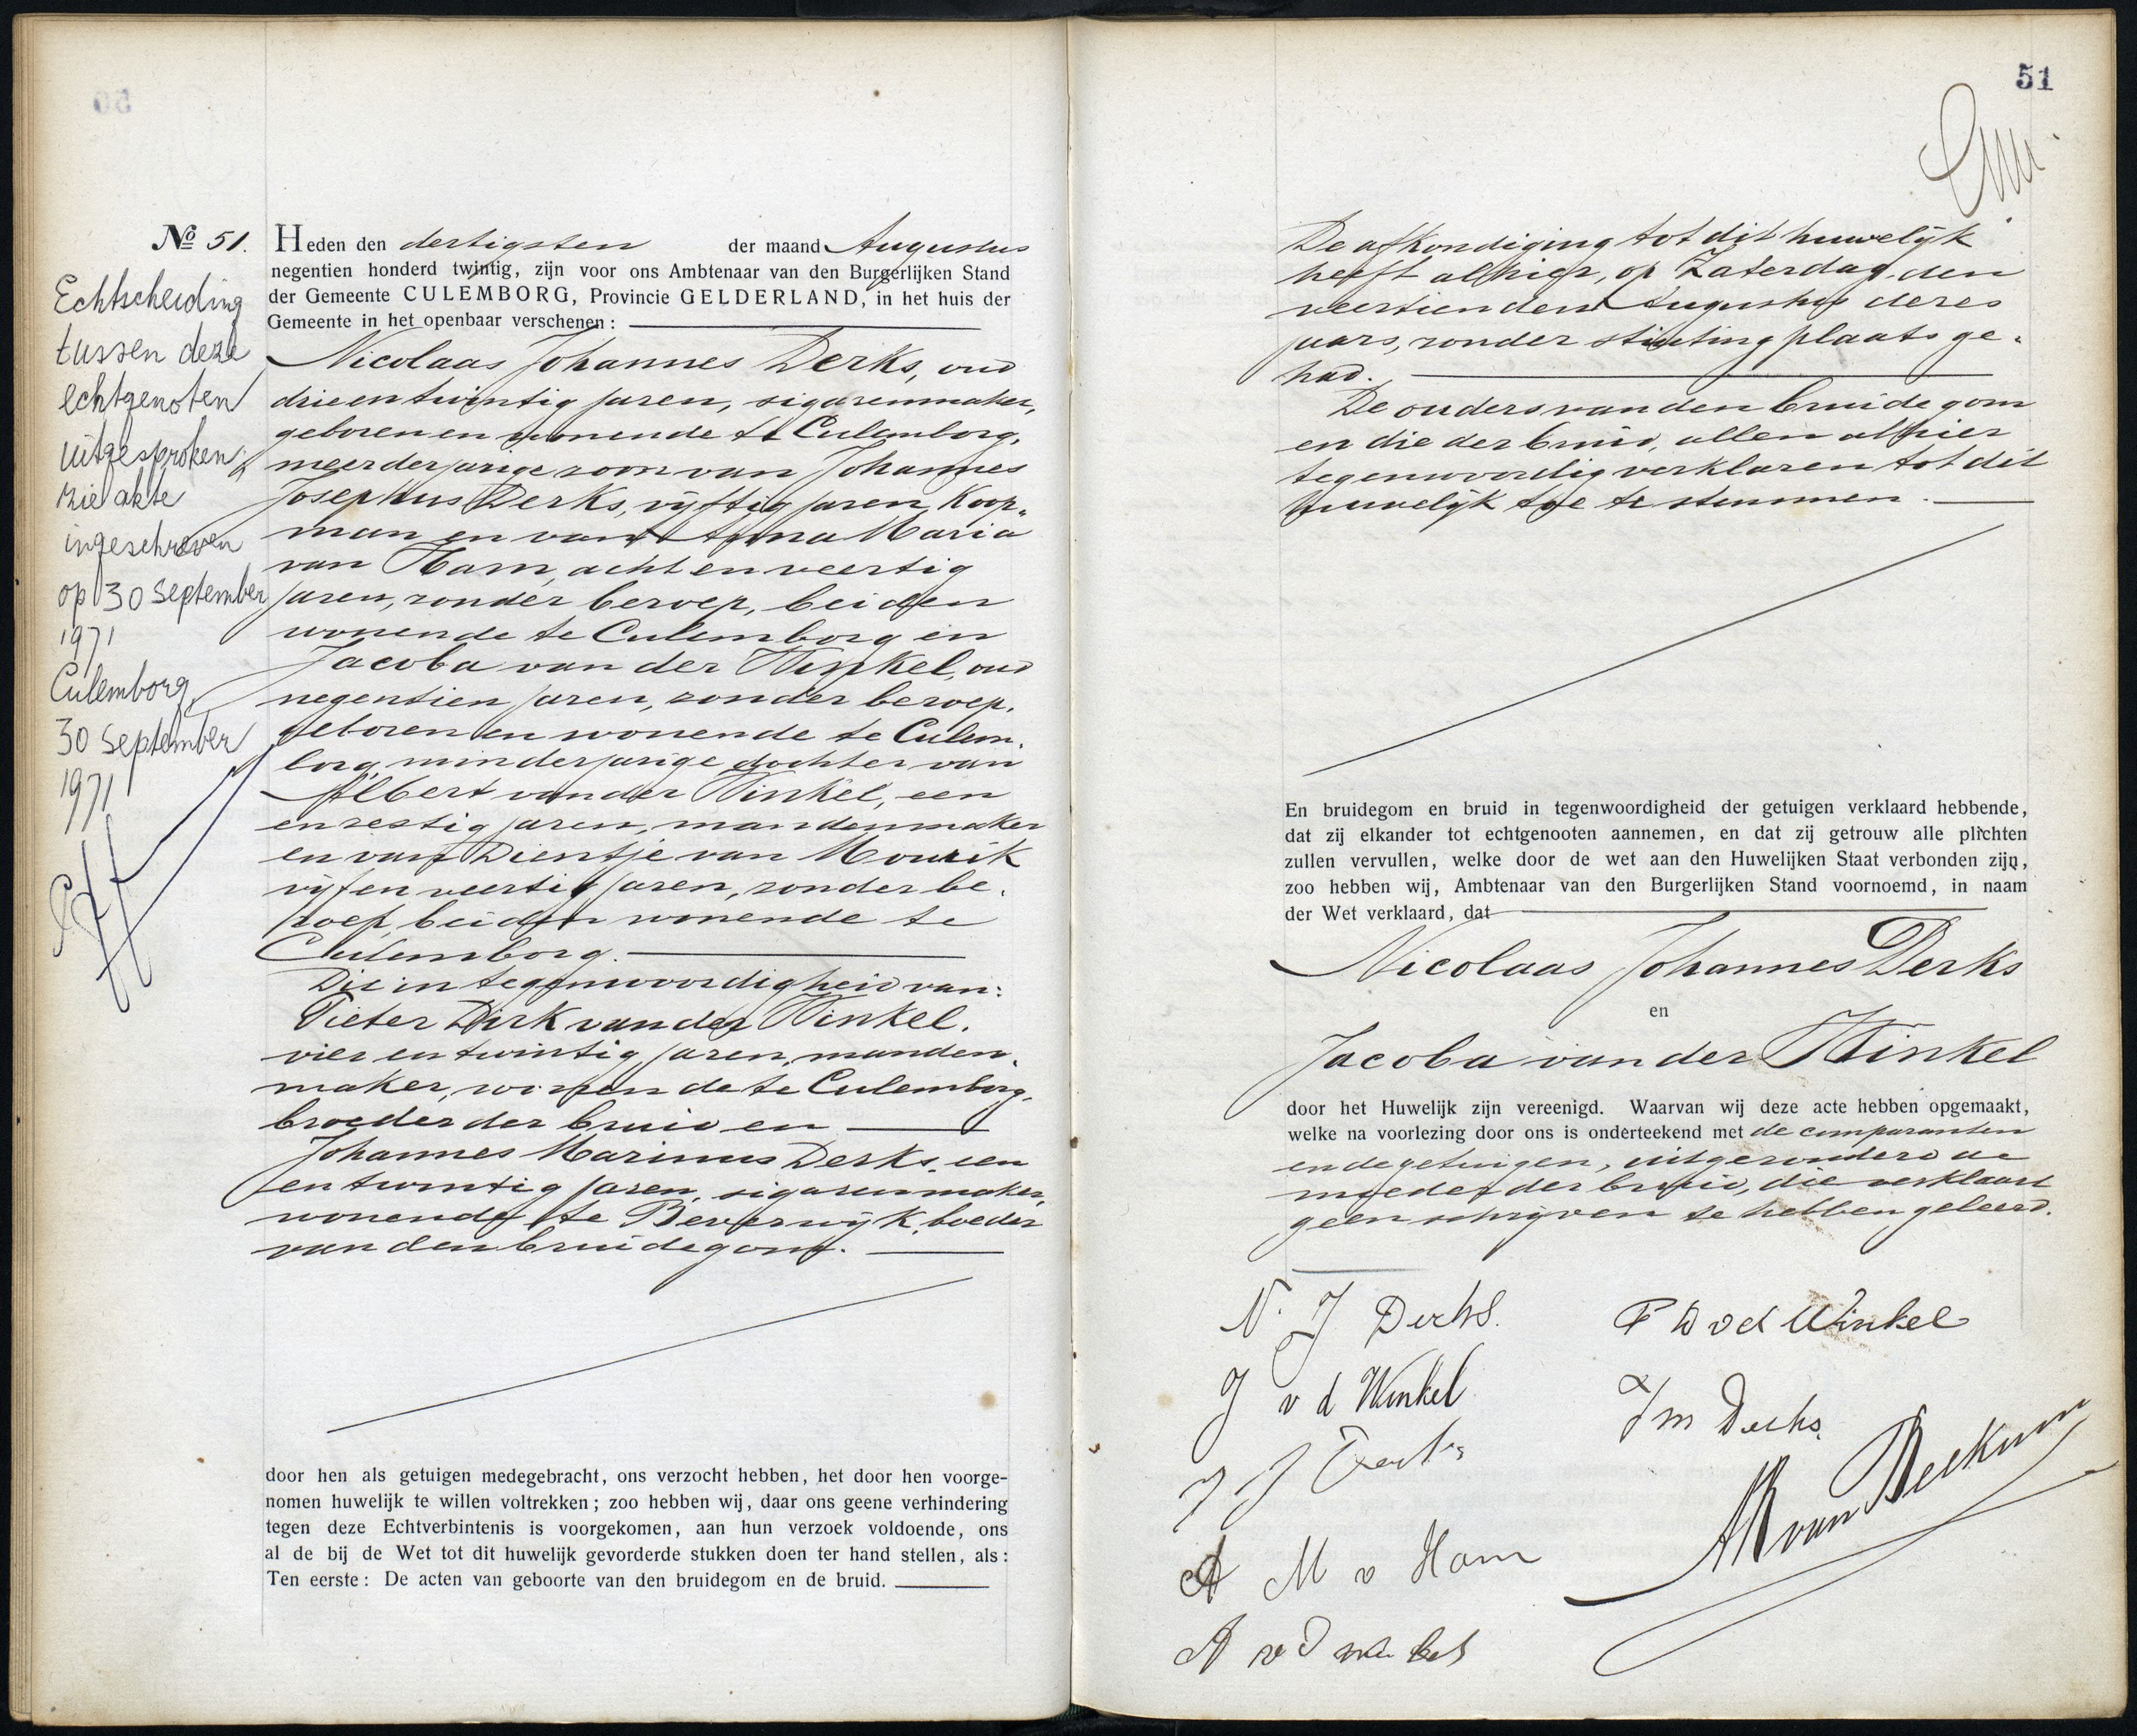 50
№ 51.
Heden den dertigsten der maand Augustus
negentien honderd twintig, zijn voor ons Ambtenaar van den Burgerlijken Stand
der Gemeente CULEMBORG, Provincie GELDERLAND, in het huis der
Gemeente in het openbaar verschenen:
Nicolaas Johannes Derks, oud
drieentwintig jaren, sigarenmaker,
geboren en wonende te Culemborg,
meerderjarige zoon van Johannes
Josephus Derks, vijftig jaren, Koop-
man en van Anna Maria
van Ham, achtenveertig
jaren, zonder beroep, beiden
wonende te Culemborg en
Jacoba van der Winkel, oud
negentien jaren, zonder beroep,
geboren en wonende te Culem-
borg, minderjarige dochter van
Albert van der Winkel, een
en zestig jaren, mandenmaker
en van Dientje van Mourik
vijfenveertig jaren, zonder be-
roep, beiden wonende te
Culemborg.
Die in tegenwoordigheid van:
Pieter Dirk van der Winkel,
vier en twintig jaren, manden-
maker, wonende te Culemborg,
broeder der bruid en
Johannes Marinus Derks, een
en twintig jaren, sigarenmaker,
wonende te Beverwijk, boeder
van den bruidegom.
door hen als getuigen medegebracht, ons verzocht hebben, het door hen voorge-
nomen huwelijk te willen voltrekken; zoo hebben wij, daar ons geene verhindering
tegen deze Echtverbintenis is voorgekomen, aan hun verzoek voldoende, ons
al de bij de Wet tot dit huwelijk gevorderde stukken doen ter hand stellen, als:
Ten eerste: De acten van geboorte van den bruidegom en de bruid.
Echtscheiding
tussen deze
echtgenoten
uitgesproken;
zie akte
ingeschreven
op 30 september
1971
Culemborg,
30 september
1971
51
De afkondiging tot dit huwelijk
heeft alhier, op Zaterdag, den
veertienden Augustus dezes
jaars, zonder stuiting plaats ge-
had.
De ouders van den bruidegom
en die der bruid, allen alhier
tegenwoordig verklaren tot dit
huwelijk toe te stemmen.
En bruidegom en bruid in tegenwoordigheid der getuigen verklaard hebbende,
dat zij elkander tot echtgenooten aannemen, en dat zij getrouw alle plichten
zullen vervullen, welke door de wet aan den Huwelijken Staat verbonden zijn,
zoo hebben wij, Ambtenaar van den Burgerlijken Stand voornoemd, in naam
der Wet verklaard, dat
Nicolaas Johannes Derks
en
Jacoba van der Winkel
door het Huwelijk zijn vereenigd. Waarvan wij deze acte hebben opgemaakt,
welke na voorlezing door ons is onderteekend met de comparanten
en de getuigen, uitgezonderd de
moeder der bruid, die verklaart
geen schrijven te hebben geleerd.
N. J Derks.
P D v d Winkel
J v d Winkel
J M Derks.
J J Derks
A M v Ham
A v d winkel
AR van Beekum